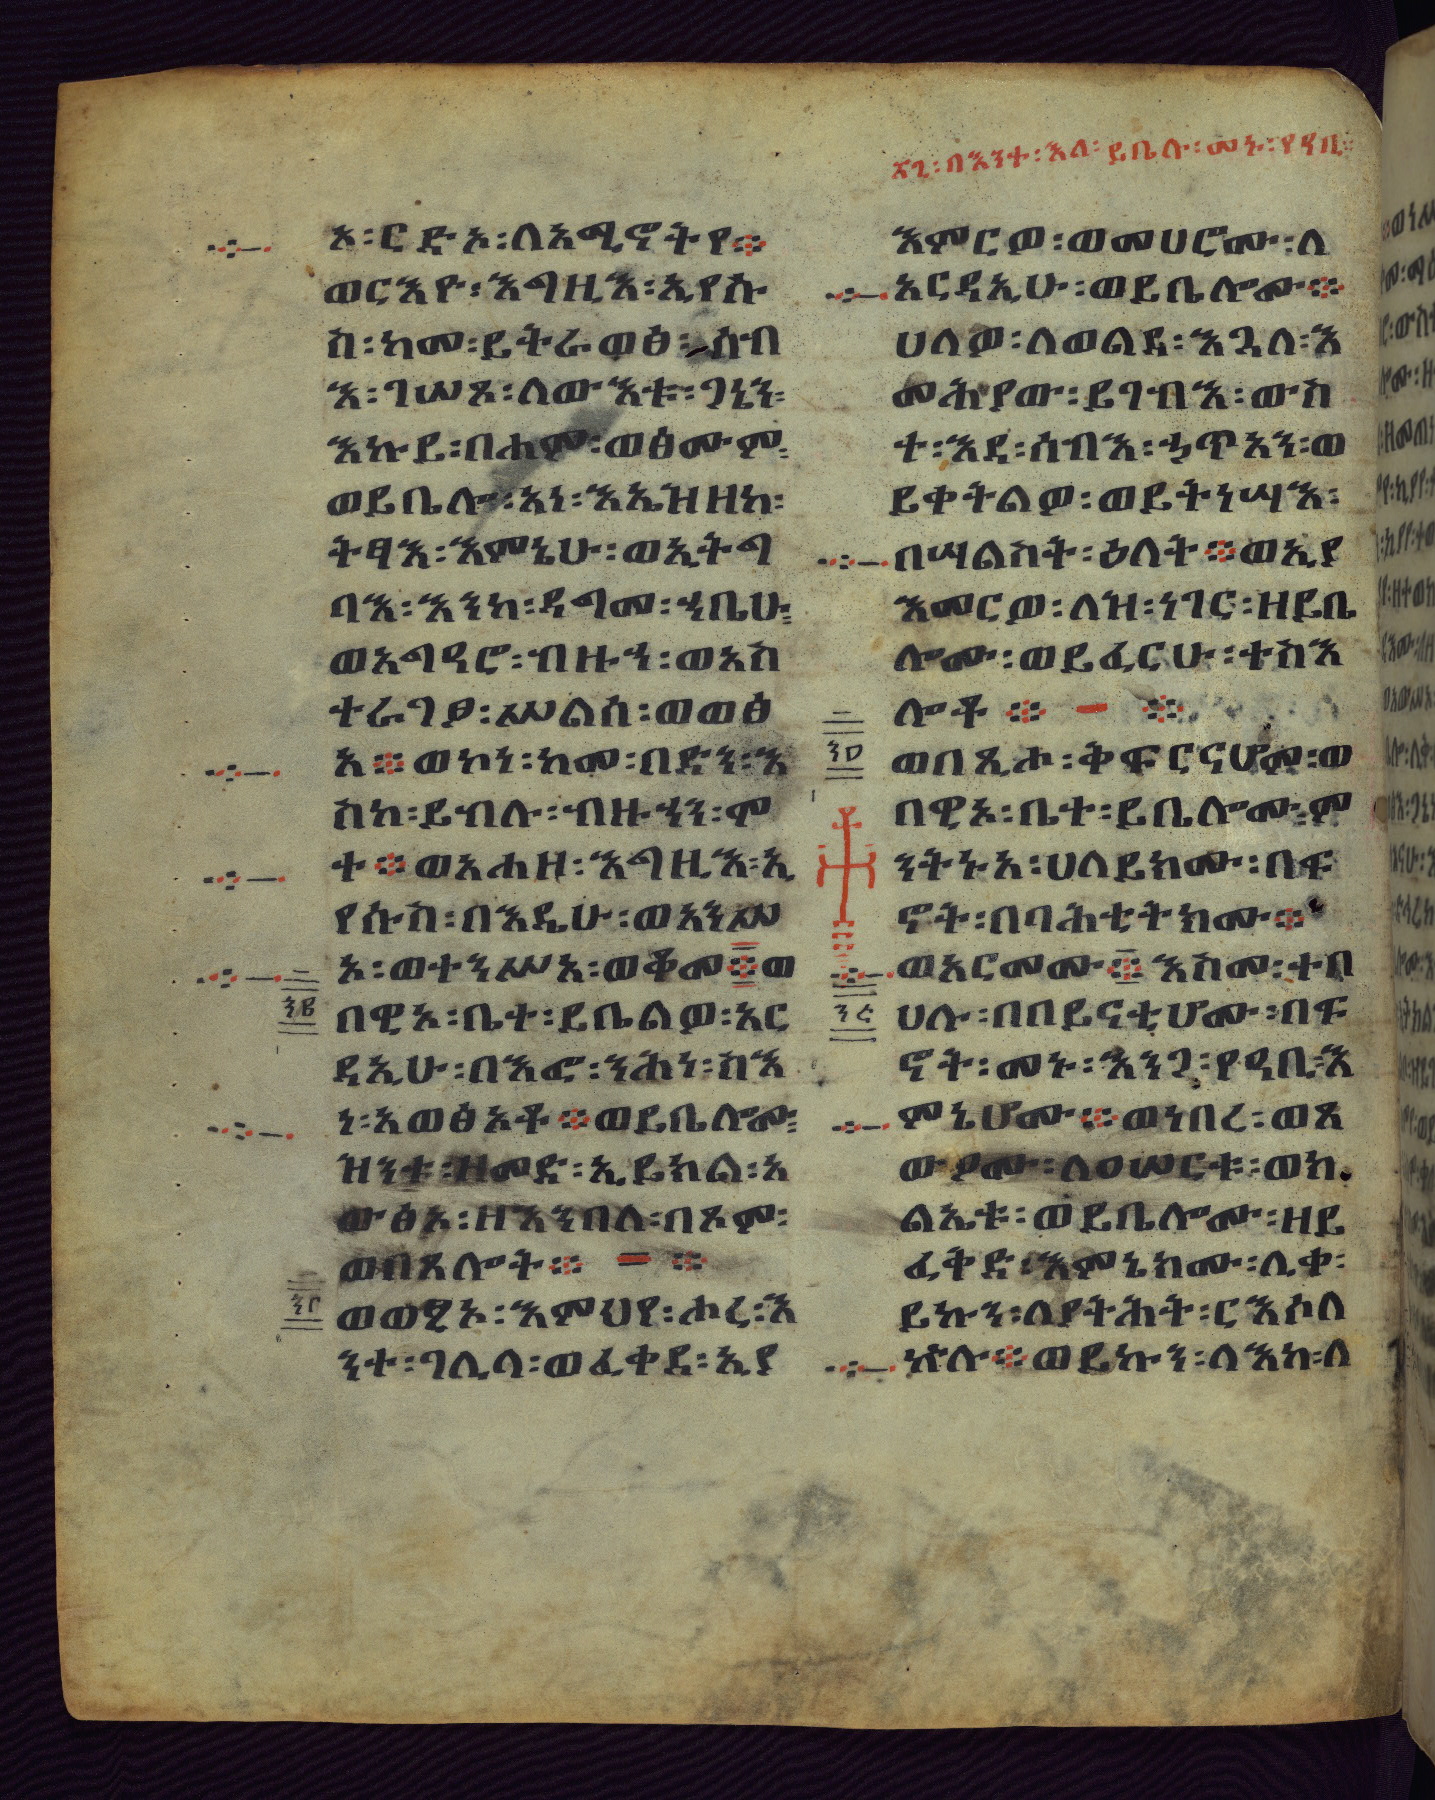 ፳፯፡በእንተ፡እለ፡ይቤሉ፡መኑ፡የዓቢ።
አ፡ርድኦ፡ለአሚኖትየ፨
ወርእዮ፡እግዚእ፡ኢየሱ
ስ፡ከመ፡ይትራወፅ፡ሰብ
እ፡ገሠጾ፡ለውእቱ፡ጋኔን፡
እኩይ፡በሐም፡ወፅሙም፡
ወይቤሎ፡አነ፡እኤዝዘከ፡
ትፃእ፡እምኔሁ፡ወኢትግ
ባእ፡እንከ፡ዳግመ፡ኀቤሁ፡
ወአግዓሮ፡ብዙኀ፡ወአስ
ተራገፆ፡ሥልሰ፡ወወፅ
አ፨ወኮነ፡ከመ፡በድን፡እ
ስከ፡ይብሉ፡ብዙኃን፡ሞ
ተ፨ወአሐዘ፡እግዚእ፡ኢ
የሱስ፡በእዴሁ፡ወአንሥ
አ፡ወተንሥአ፡ወቆመ፨ወ
፺፪
በዊኦ፡ቤተ፡ይቤልዎ፡አር
ዳኢሁ፡በእፎ፡ንሕነ፡ስእ
ነ፡አወፅኦቶ፨ወይቤሎሙ፡
ዝንቱ፡ዘመድ፡ኢይክል፡አ
ውፅኦ፡ዘእንበለ፡በጾም፡
ወበጸሎት፨ - ፨
፺፫
ወወፂኦ፡እምህየ፡ሖረ፡እ
ንተ፡ገሊላ፡ወፈቀደ፡ኢያ
እምርዎ፡ወመሀሮሙ፡ለ
አርዳኢሁ፡ወይቤሎሙ፨
ሀለዎ፡ለወልደ፡እጓለ፡እ
መሕያው፡ይገብእ፡ውስ
ተ፡እደ፡ሰብእ፡ኃጥአን፡ወ
ይቀትልዎ፡ወይትነሣእ፡
በሣልስት፡ዕለት፨ወኢያ
እመርዎ፡ለዝ፡ነገር፡ዘይቤ
ሎሙ፡ወይፈርሁ፡ተስእ
ሎቶ፨ - ፨
፺፬
ወበጺሖ፡ቅፍርናሆመ፡ወ
በዊኦ፡ቤተ፡ይቤሎሙ፡ም
ንትኑአ፡ሀለይክሙ፡በፍ
ኖት፡በባሕቲትክሙ፨
ወአርመሙ፨እስመ፡ተበ
፺፭
ሀሉ፡በበይናቲሆሙ፡በፍ
ኖት፡መኑ፡እንጋ፡የዓቢ፡እ
ምኔሆሙ፨ወነበረ፡ወጸ
ውዖሙ፡ለዐሠርቱ፡ወክ
ልኤቱ፡ወይቤሎሙ፡ዘይ
ፈቅድ፡እምኔክሙ፡ሊቀ፡
ይኩን፡ለያትሕት፡ርእሶለ
ኵሉ፨ወይኩን፡ላእከ፡ለ